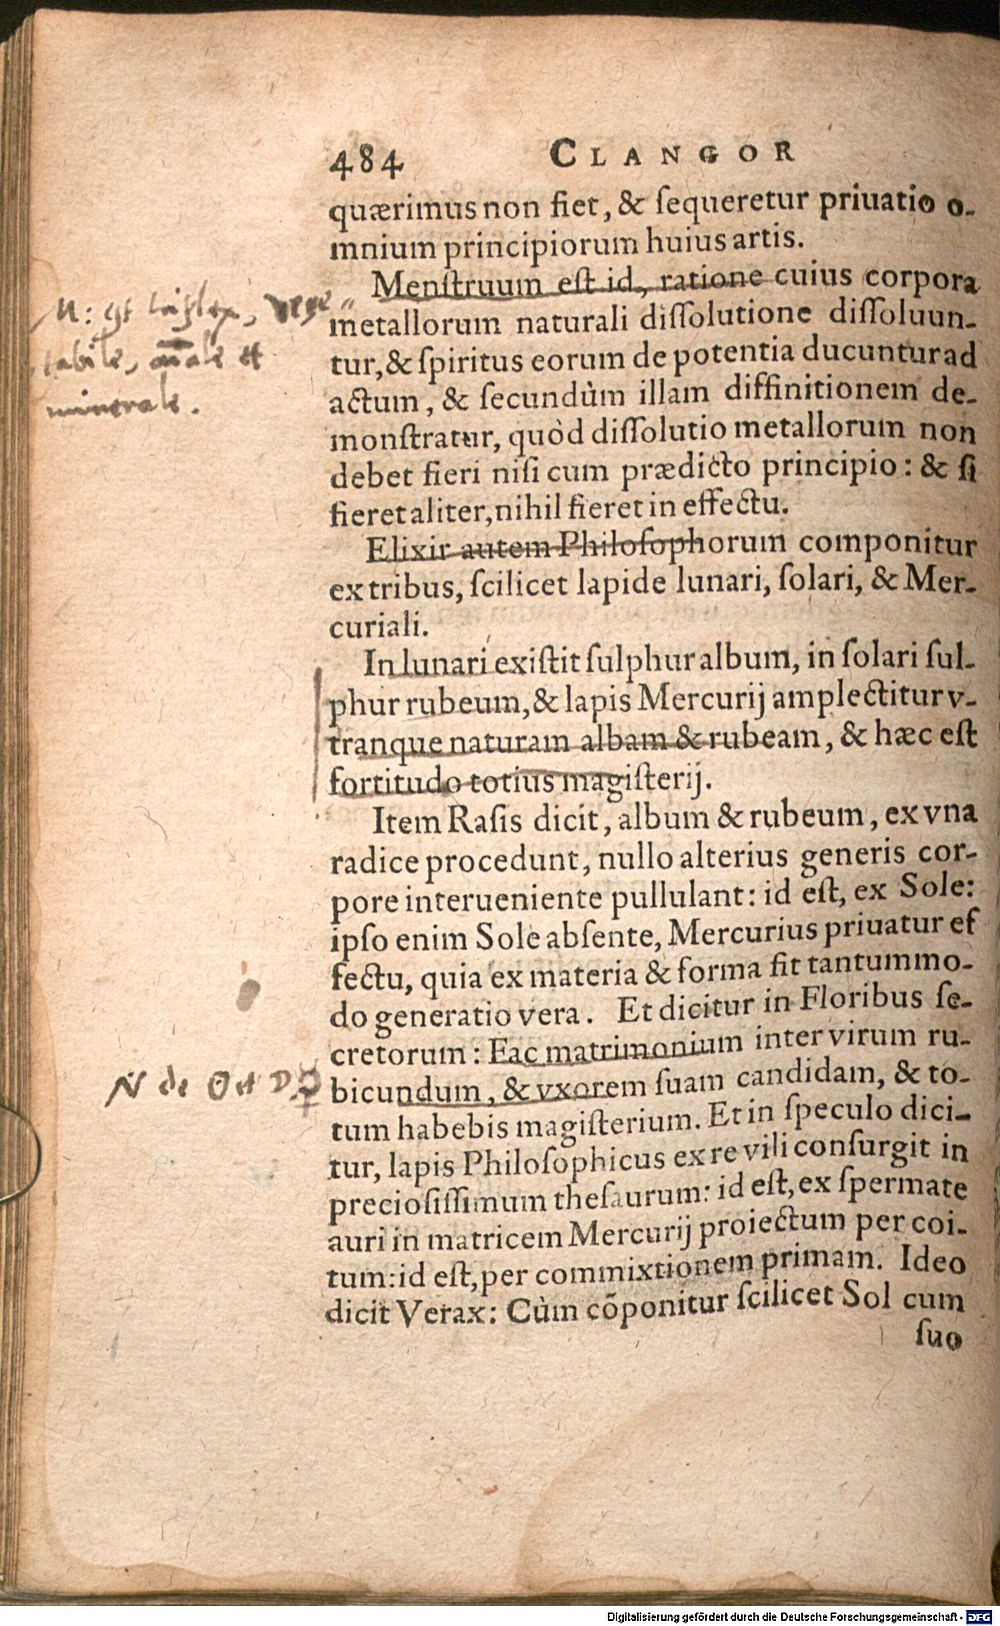 484 CLANGOR
quærimus non fiet, & ſequeretur priuatio o-
mnium principiorum huius artis.
Menſtruum eſt id, ratione cuius corpora
metallorum naturali diſſolutione diſſoluun-
tur, & ſpiritus eorum de potentia ducuntur ad
actum, & ſecundùm illam diffinitionem de-
monſtratur, quòd diſſolutio metallorum non
debet fieri niſi cum prædicto principio: & ſi
fieret aliter, nihil fieret in effectu.
Elixir autem Philoſophorum componitur
ex tribus, ſcilicet lapide lunari, ſolari, & Mer-
curiali.
In lunari exiſtit ſulphur album, in ſolari ſul-
phur rubeum, & lapis Mercurij amplectitur v-
tranque naturam albam & rubeam, & hæc eſt
fortitudo totius magiſterij.
Item Raſis dicit, album & rubeum, ex vna
radice procedunt, nullo alterius generis cor-
pore interueniente pullulant: id eſt, ex Sole:
ipſo enim Sole abſente, Mercurius priuatur ef
fectu, quia ex materia & forma fit tantummo-
do generatio vera. Et dicitur in Floribus ſe-
cretorum: Fac matrimonium inter virum ru-
bicundum, & vxorem ſuam candidam, & to-
tum habebis magiſterium. Et in ſpeculo dici-
tur, lapis Philoſophicus ex re vili conſurgit in
precioſiſſimum theſaurum: id eſt, ex ſpermate
auri in matricem Mercurij proiectum per coi-
tum: id eſt, per commixtionem primam. Ideo
dicit Verax: Cùm cōponitur ſcilicet Sol cum
ſuo
N: est triplex, vege
tabile, a͞nale et
minerale.
N de ☉ et
Digitalisierung gefördert durch die Deutsche Forschungsgemeinschaft - DFG